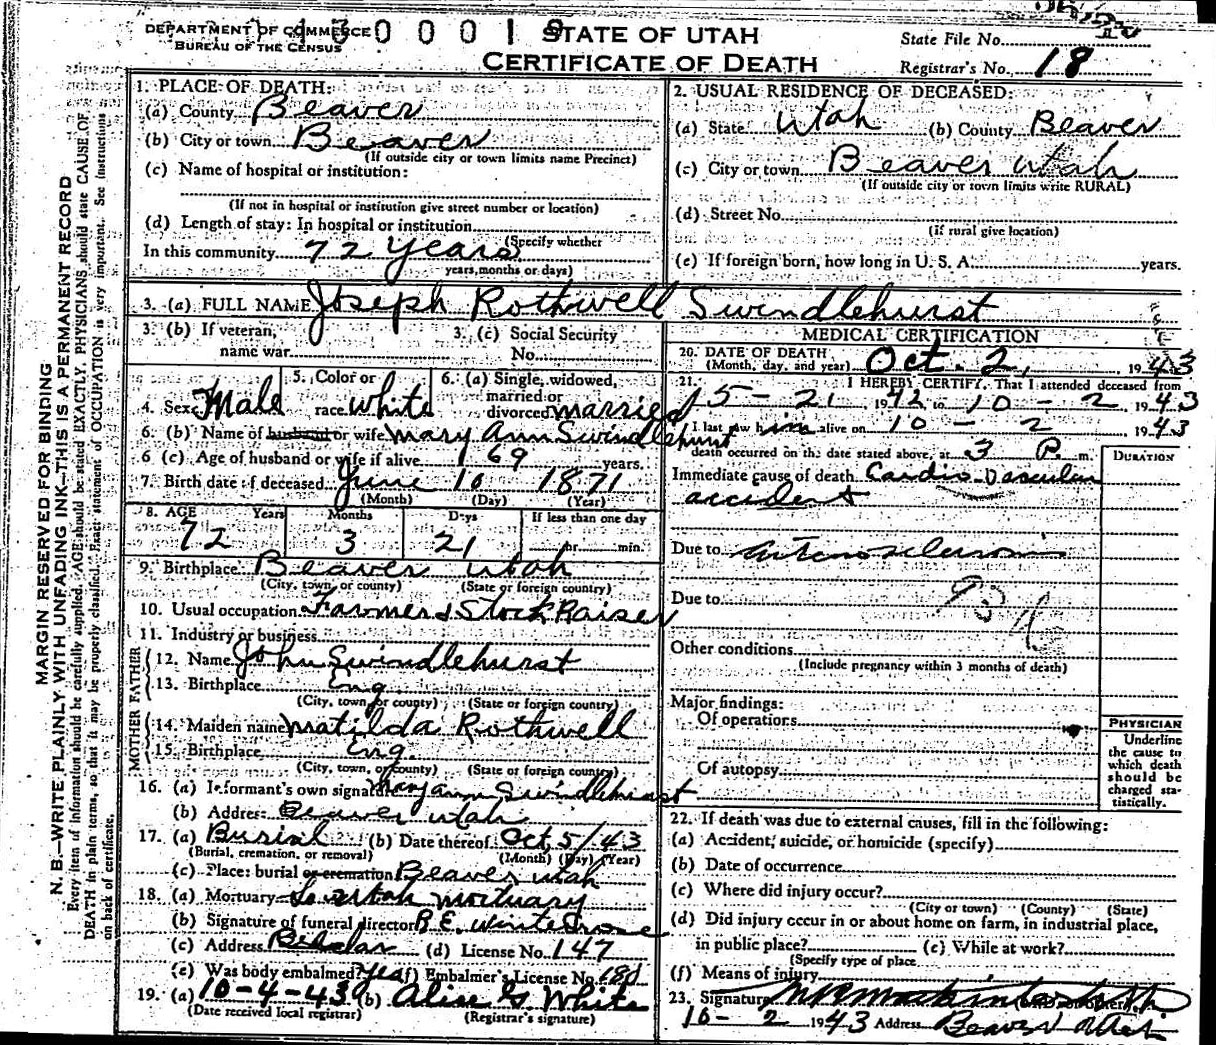 DEPARTMENT OF COMMERCE
BUREAU OF THE CENSUS
STATE OF UTAH
CERTIFICATE OF DEATH
State File No.
Registrar's No. 18
MARGIN RESERVED FOR BINDING
N. B.—WRITE PLAINLY WITH UNFADING INK—THIS IS A PERMANENT RECORD
Every item of information should be carefully supplied. AGE should be stated EXACTLY. PHYSICIANS should state CAUSE OF
DEATH in plain terms, so that it may be properly classified. Exact statement of OCCUPATION is very important. See instructions
on back of certificate.
1. PLACE OF DEATH:
(a) County Beaver
(b) City or town Beaver
(If outside city or town limits name Precinct)
(c) Name of hospital or institution:
(If not in hospital or institution give street number or location)
(d) Length of stay: In hospital or institution
(Specify whether
In this community 72 Years
years, months or days)
2. USUAL RESIDENCE OF DECEASED:
(a) State Utah (b) County Beaver
(c) City or town Beaver Utah
(If outside city or town limits write RURAL)
(d) Street No.
(if rural give location)
(e) If foreign born, how long in U. S. A. years.
3. (a) FULL NAME Joseph Rothwell Swindlehurst
3. (b) If veteran, name war
3. (c) Social Security No.
4. Sex Male
5. Color or race White
6. (a) Single, widowed, married or divorced married
6. (b) Name of husband or wife Mary Ann Swindlehurst
6 (c) Age of husband or wife if alive 69 years.
7. Birth date of deceased June 10 1871
(Month) (Day) (Year)
8. AGE Years Months Days If less than one day
72 3 21 hr. min.
9. Birthplace Beaver Utah
(City, town, or county) (State or foreign country)
10. Usual occupation Farmer & Stock Raiser
11. Industry or business
FATHER
12. Name John Swindlehurst
13. Birthplace Eng
(City, town or county) (State or foreign country)
MOTHER
14. Maiden name Matilda Rothwell
15. Birthplace Eng.
(City, town, or county) (State or foreign country)
16. (a) Informant's own signature Mary Ann Swindlehurst
(b) Address Beaver Utah
17. (a) Burial (b) Date thereof Oct, 5/43
(Burial, cremation, or removal) (Month) (Day) (Year)
(c) Place: burial or cremation Beaver Utah
18. (a) Mortuary So Utah Mortuary
(b) Signature of funeral director R. E. Winterrose
(c) Address (d) License No. 147
(e) Was body embalmed? Yes (f) Embalmer's License No. 181
19. (a) 10-4-43 (b) Alice G White
(Date received local registrar) (Registrar's signature)
MEDICAL CERTIFICATION
20. DATE OF DEATH
(Month, day, and year) Oct. 2, 1943
21. I HEREBY CERTIFY, That I attended deceased from
5-21 1942 to 10-2 1943
I last saw him alive on 10-2 1943
death occurred on the date stated above, at 3 P m.
DURATION
Immediate cause of death Cardio-Vascular
accident
Due to arteriosclerosis
Due to
Other conditions
(Include pregnancy within 3 months of death)
Major findings:
Of operations
Of autopsy
PHYSICIAN
Underline
the cause to
which death
should be
charged sta-
tistically.
22. If death was due to external causes, fill in the following:
(a) Accident, suicide, or homicide (specify)
(b) Date of occurrence
(c) Where did injury occur?
(City or town) (County) (State)
(d) Did injury occur in or about home on farm, in industrial place,
in public place? (e) While at work?
(Specify type of place
(f) Means of injury
23. Signature
10-2 1943 Address Beaver Utah